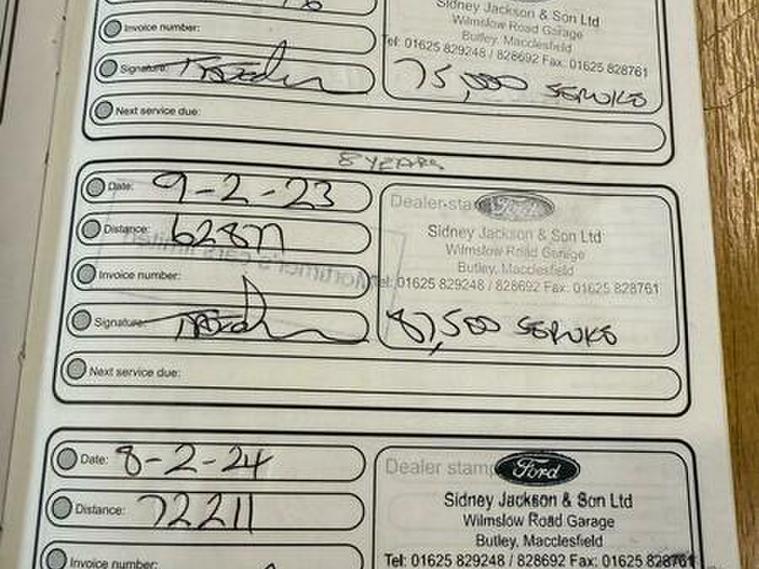 Sidney Jackson & Son Ltd
Wilmslow Road Garage
Invoice number:
Butley, Macclesfield
Tel: 01625 829248 / 828692 Fax: 01625 828761
Signature:
75,000 SERVICE
Next service due:
8 YEARS
Date: 9-2-23
Dealer stamp Ford
Distance: 62877
Sidney Jackson & Son Ltd
Wilmslow Road Garage
Butley, Macclesfield
Invoice number:
Tel: 01625 829248 / 828692 Fax: 01625 828761
Signature:
87,500 SERVICE
Next service due:
Date: 8-2-24
Dealer stamp Ford
Distance: 72211
Sidney Jackson & Son Ltd
Wilmslow Road Garage
Butley, Macclesfield
Invoice number:
Tel: 01625 829248 / 828692 Fax: 01625 828761